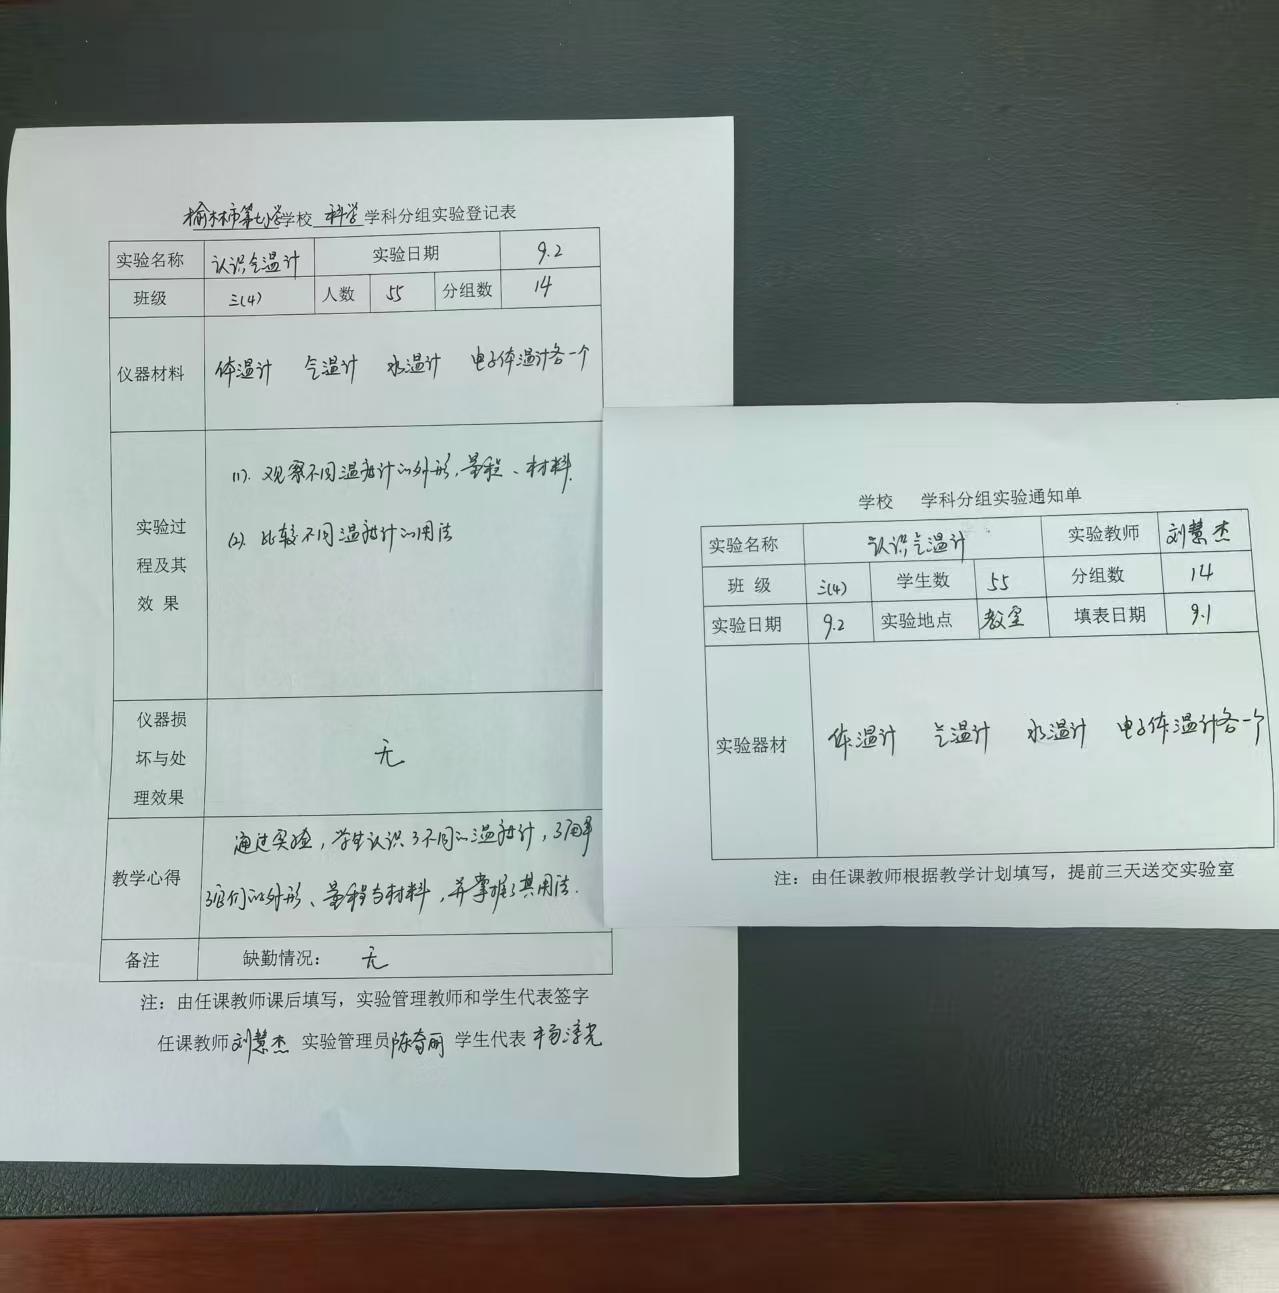 榆林市第七小学学校 科学 学科分组实验登记表
实验名称 认识气温计 实验日期 9.2
班级 三(4) 人数 55 分组数 14
仪器材料 体温计 气温计 水温计 电子体温计各一个
实验过程及其效果
(1). 观察不同温度计的外形、量程、材料.
(2). 比较不同温度计的用法
仪器损坏与处理效果 无
教学心得
通过实验，学生认识了不同的温度计，了解
了它们的外形、量程与材料，并掌握了其用法.
备注 缺勤情况： 无
注：由任课教师课后填写，实验管理教师和学生代表签字
任课教师 刘慧杰 实验管理员 陈奋丽 学生代表 杨淳光
学校 学科分组实验通知单
实验名称 认识气温计 实验教师 刘慧杰
班 级 三(4) 学生数 55 分组数 14
实验日期 9.2 实验地点 教室 填表日期 9.1
实验器材 体温计 气温计 水温计 电子体温计各一个
注：由任课教师根据教学计划填写，提前三天送交实验室